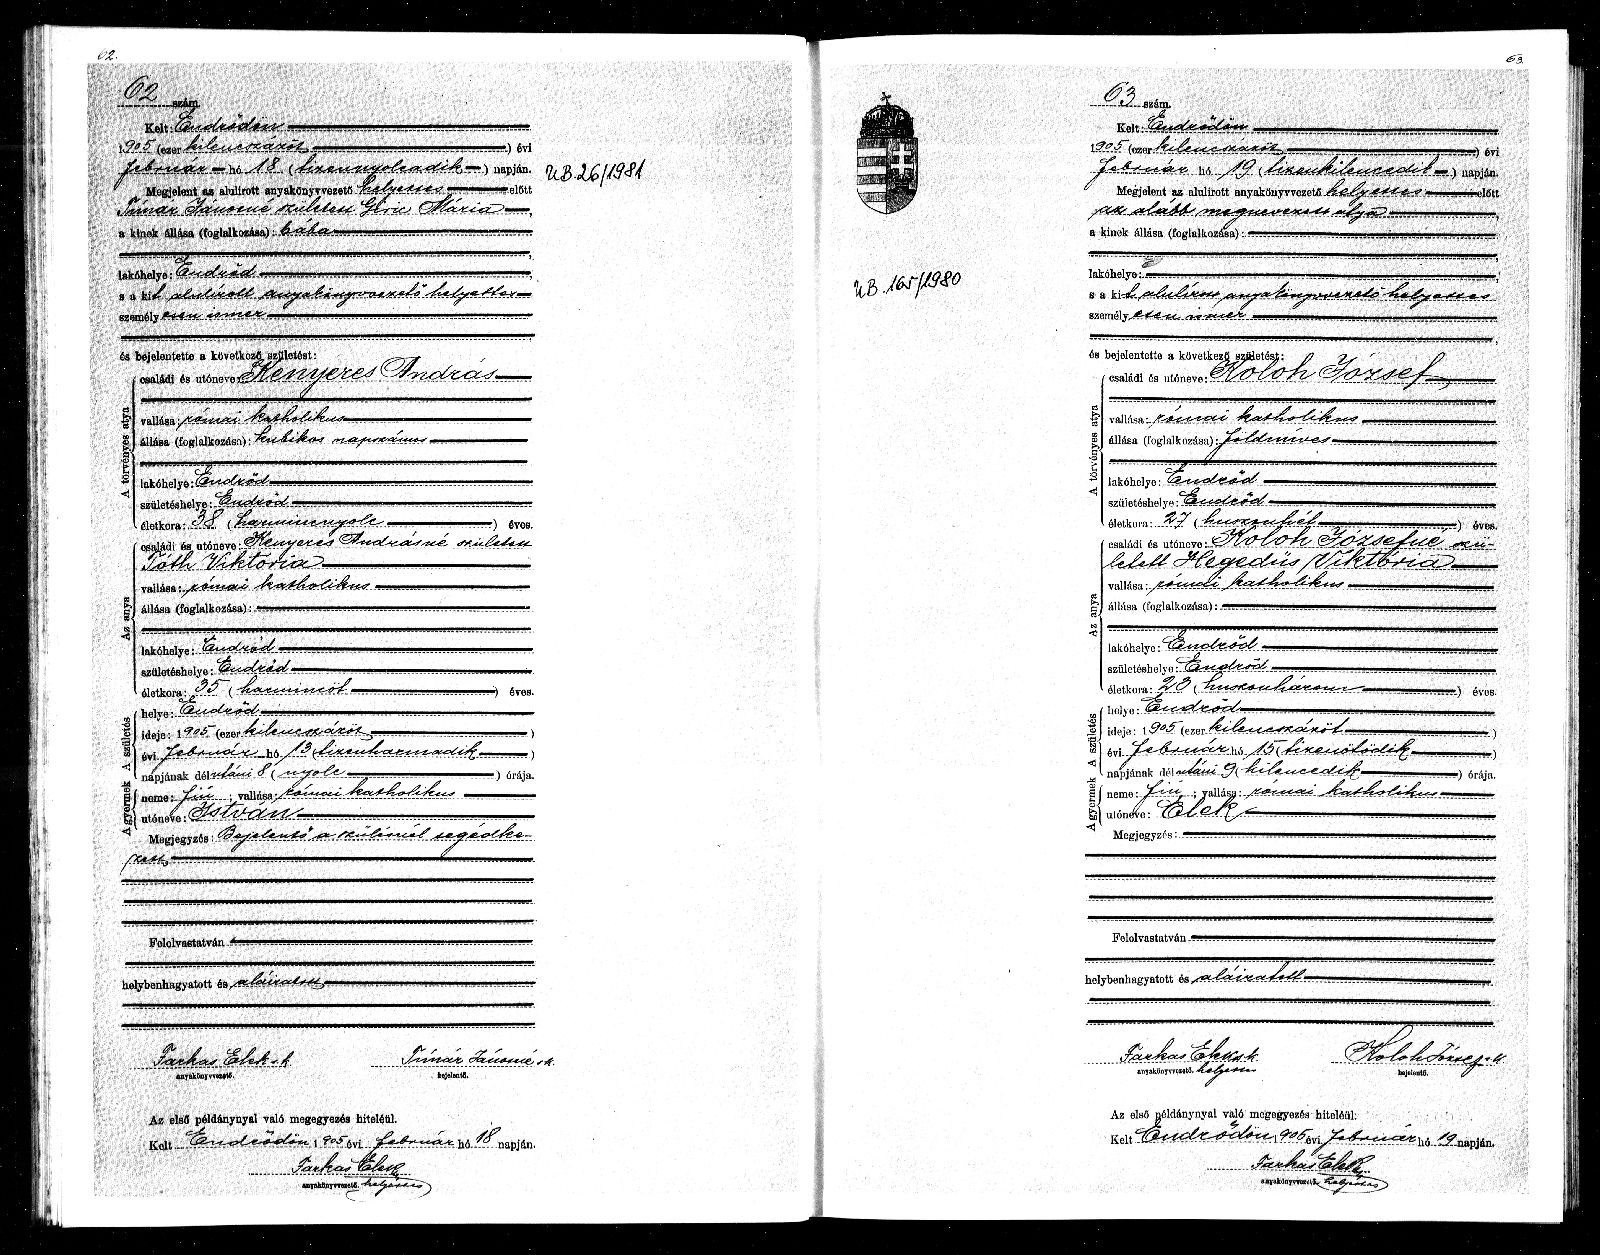 62.
62 szám.
Kelt: Endrődön
1905 (ezer kilencszázöt) évi
február hó 18 (tizennyolcadik) napján.
Megjelent az alulirott anyakönyvvezető helyettes előtt
Tímár Jánosné született Mária
a kinek állása (foglalkozása): bába
lakóhelye: Endrőd
s a kit alulírott anyakönyvvezető helyettes
személyesen ismer
és bejelentette a következő születést:
A törvényes atya
családi és utóneve: Kenyeres András
vallása: római katholikus
állása (foglalkozása): kubikos napszámos
lakóhelye: Endrőd
születéshelye: Endrőd
életkora: 38 (harmincnyolc) éves.
Az anya
családi és utóneve: Kenyeres Andrásné született
Tóth Viktoria
vallása: római katholikus
állása (foglalkozása):
lakóhelye: Endrőd
születéshelye: Endrőd
életkora: 35 (harmincöt) éves.
A születés
helye: Endrőd
ideje: 1905 (ezer kilencszázöt)
évi február hó 13 (tizenharmadik)
napjának délutáni 8 (nyolc) órája.
A gyermek
neme: fiú; vallása: római katholikus
utóneve: István
Megjegyzés: Bejelentő a szülésnél segédke-
zett
Felolvastatván
helybenhagyatott és aláiratott
Farkas Elek s.k. Tímár Jánosné s.k.
anyakönyvvezető. bejelentő.
Az első példánynyal való megegyezés hiteléül.
Kelt Endrődön 1905 évi február hó 18 napján.
Farkas Elek
anyakönyvvezető. helyettes
UB.26/1981
63.
63 szám.
Kelt: Endrődön
1905 (ezer kilencszázöt) évi
február hó 19 (tizenkilencedik) napján.
Megjelent az alulirott anyakönyvvezető helyettes előtt
az alább megnevezett atya
a kinek állása (foglalkozása):
lakóhelye:
s a kit alulírott anyakönyvvezető helyettes
személyesen ismer
és bejelentette a következő születést:
A törvényes atya
családi és utóneve: Koloh József
vallása: római katholikus
állása (foglalkozása): földmíves
lakóhelye: Endrőd
születéshelye: Endrőd
életkora: 27 (huszonhét) éves.
Az anya
családi és utóneve: Koloh Józsefné szü-
letett Hegedüs Viktória
vallása: római katholikus
állása (foglalkozása):
lakóhelye: Endrőd
születéshelye: Endrőd
életkora: 23 (huszonhárom) éves.
A születés
helye: Endrőd
ideje: 1905 (ezer kilencszázöt)
évi február hó 15 (tizenötödik)
napjának délutáni 9 (kilencedik) órája.
A gyermek
neme: fiú; vallása: római katholikus
utóneve: Elek
Megjegyzés:
Felolvastatván
helybenhagyatott és aláiratott
Farkas Elek s.k. Koloh József s.k.
anyakönyvvezető. helyettes bejelentő.
Az első példánynyal való megegyezés hiteléül:
Kelt Endrődön 1905 évi február hó 19 napján.
Farkas Elek
anyakönyvvezető. helyettes
UB.165/1980